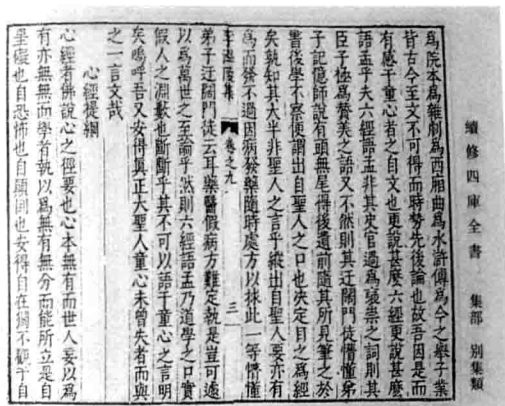 續修四庫全書　集部　別集類
為院本為雜劇為西廂曲為水滸傳為今之舉子業
皆古今至文不可得而時勢先後論也故吾因是而
有感于童心者之自文也更說甚麼六經更說甚麼
語孟乎夫六經語孟非其史官過為褒崇之詞則其
臣子極為贊美之語又不然則其迂闊門徒懵懂弟
子記憶師說有頭無尾得後遺前隨其所見筆之於
書後學不察便謂出自聖人之口也决定目之為經
矣孰知其大半非聖人之言乎縱出自聖人要亦有
為而發不過因病發藥隨時處方以捄此一等懵懂
李溫陵集　卷之九　三
弟子迂闊門徒云耳藥醫假病方難定執是豈可遽
以為萬世之至論乎然則六經語孟乃道學之口實
假人之淵藪也斷斷乎其不可以語于童心之言明
矣嗚呼吾又安得真正大聖人童心未曾失者而與
之一言文哉
心經提綱
心經者佛說心之徑要也心本無有而世人妄以為
有亦無無而學者執以為無有無分而能所立是自
罣礙也自恐怖也自顛倒也安得自在獨不觀于自